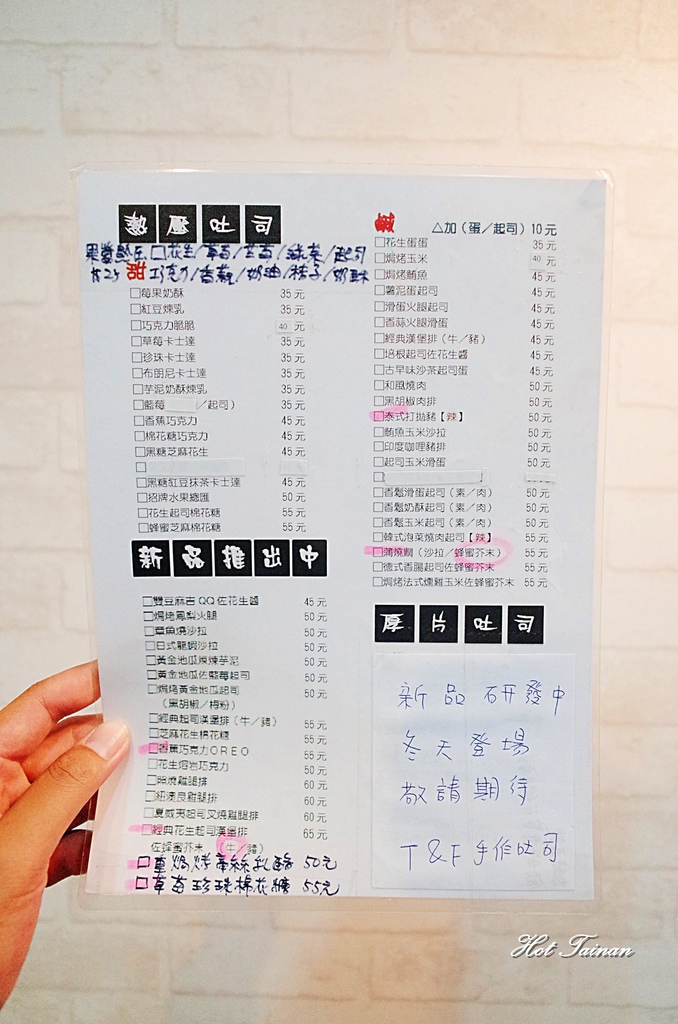 熱壓吐司
果醬 □花生/草莓/藍莓/綠茶/起司
巧克力/香蒜/奶油/椰子/奶酥
□莓果奶酥 35元
□紅豆煉乳 35元
□巧克力脆脆 40元
□草莓卡士達 35元
□珍珠卡士達 35元
□布朗尼卡士達 35元
□芋泥奶酥煉乳 35元
□藍莓 /起司) 35元
□香蕉巧克力 45元
□棉花糖巧克力 45元
□黑糖芝麻花生 45元
□黑糖紅豆抹茶卡士達 45元
□招牌水果總匯 50元
□花生起司棉花糖 55元
□蜂蜜芝麻棉花糖 55元
新品推出中
□雙豆麻吉QQ佐花生醬 45元
□焗烤鳳梨火腿 50元
□章魚燒沙拉 50元
□日式龍蝦沙拉 50元
□黃金地瓜煉煉芋泥 50元
□黃金地瓜佐藍莓起司 50元
□焗烤黃金地瓜起司 50元
(黑胡椒/梅粉)
□經典起司漢堡排(牛/豬) 55元
□芝麻花生棉花糖 55元
□香蕉巧克力OREO 55元
□花生熔岩巧克力 50元
□照燒雞腿排 60元
□紐澳良雞腿排 60元
□夏威夷起司叉燒雞腿排 60元
□經典花生起司漢堡排 65元
佐蜂蜜芥末 (牛/豬)
□薯焗烤牽絲乳酪 50元
□草莓珍珠棉花糖 55元
鹹 △加(蛋/起司)10元
□花生蛋蛋 35元
□焗烤玉米 40元
□焗烤鮪魚 45元
□薯泥蛋起司 45元
□滑蛋火腿起司 45元
□香蒜火腿滑蛋 45元
□經典漢堡排(牛/豬) 45元
□培根起司佐花生醬 45元
□古早味沙茶起司蛋 45元
□和風燒肉 50元
□黑胡椒肉排 50元
□泰式打拋豬【辣】 50元
□鮪魚玉米沙拉 50元
□印度咖哩豬排 50元
□起司玉米滑蛋 50元
□香鬆滑蛋起司(素/肉) 50元
□香鬆奶酥起司(素/肉) 50元
□香鬆玉米起司(素/肉) 50元
□韓式泡菜燒肉起司【辣】 55元
□蒲燒鯛(沙拉/蜂蜜芥末) 55元
□德式香腸起司佐蜂蜜芥末 55元
□焗烤法式燻雞玉米佐蜂蜜芥末 55元
厚片吐司
新品研發中
冬天登場
敬請期待
T&F手作吐司
Hot Tainan